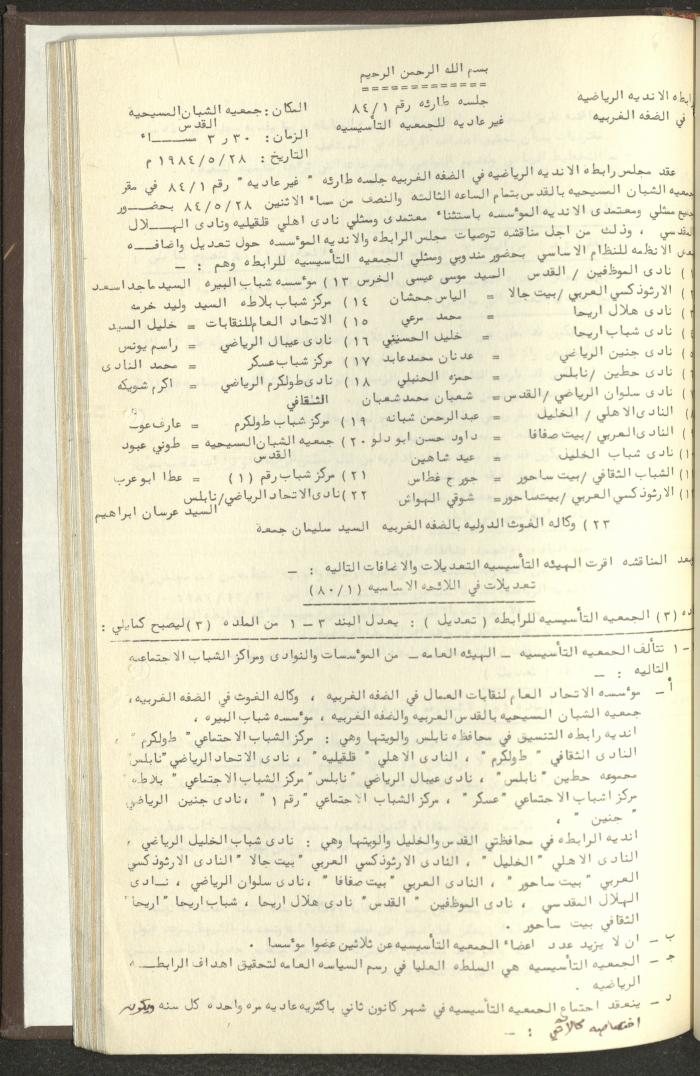 بسم الله الرحمن الرحيم
رابطه الانديه الرياضيه
في الضفه الغربيه
جلسه طارئه رقم ٨٤/١
غير عاديه للجمعيه التأسيسيه
المكان : جمعيه الشبان المسيحيه
القدس
الزمان : ٣٠ ر ٣ مســـاء
التاريخ : ١٩٨٤/٥/٢٨ م
عقد مجلس رابطه الانديه الرياضيه في الضفه الغربيه جلسه طارئه " غير عاديه " رقم ٨٤/١ في مقر
جمعيه الشبان المسيحيه بالقدس بتمام الساعه الثالثه والنصف من مساء الاثنين ٨٤/٥/٢٨ بحضـــور
جميع ممثلي ومعتمدى الانديه المؤسسه باستثناء معتمدى وممثلي نادى اهلي قلقيليه ونادى الهـــلال
المقدسي ، وذلك من اجل مناقشه توصيات مجلس الرابطه والانديه المؤسسه حول تعديل واضافـــه
بعض الانظمه للنظام الاساسي بحضور مندوبي وممثلي الجمعيه التأسيسيه للرابطه وهم : ـ
١ ) نادى الموظفين / القدس السيد موسى عيسى الخرس ١٣ ) مؤسسه شباب البيره السيد ماجد اسعد
٢ ) الارثوذكسي العربي / بيت جالا = الياس جحشان ١٤ ) مركز شباب بلاطه السيد وليد خرمه
٣ ) نادى هلال اريحا = محمد مرعي ١٥ ) الاتحاد العام للنقابات = خليل السيد
٤ ) نادى شباب اريحا = خليل الحسيني ١٦ ) نادى عيبال الرياضي = راسم يونس
٥ ) نادى جنين الرياضي = عدنان محمد عابد ١٧ ) مركز شباب عسكر = محمد النادى
٦ ) نادى حطين / نابلس = حمزه الحنبلي ١٨ ) نادى طولكرم الرياضي = اكرم شويكه
الثقافي
٧ ) نادى سلوان الرياضي / القدس = شعبان محمد شعبان
٨ ) النادى الاهلي / الخليل = عبد الرحمن شبانه ١٩ ) مركز شباب طولكرم = عارف عوف
٩ ) النادى العربي / بيت صفافا = داود حسن ابو دلو ٢٠ ) جمعيه الشبان المسيحيه = طوني عبود
القدس
١٠ ) نادى شباب الخليل = عيد شاهين
١١ ) الشباب الثقافي / بيت ساحور = جورج غطاس ٢١ ) مركز شباب رقم ( ١ ) = عطا ابو عرب
١٢ ) الارثوذكسي العربي / بيت ساحور = شوقي الهواش ٢٢ ) نادى الاتحاد الرياضي / نابلس
السيد عرسان ابراهيم
٢٣ ) وكاله الغوث الدوليه بالضفه الغربيه السيد سليمان جمعة
بعد المناقشه اقرت الهيئه التأسيسيه التعديلات والاضافات التاليه : ـ
تعديلات في اللائحه الاساسيه ( ٨٠/١ )
ماده ( ٣ ) الجمعيه التأسيسيه للرابطه ( تعديل ) : يعدل البند ٣ ـ ١ من الماده ( ٣ ) ليصبح كمايلي :
٣ ـ ١ تتألف الجمعيه التأسيسيه ـ الهيئه العامه ـ من المؤسسات والنوادى ومراكز الشباب الاجتماعيه
التاليه : ـ
أ ـ مؤسسه الاتحاد العام لنقابات العمال في الضفه الغربيه ، وكاله الغوث في الضفه الغربيه ،
جمعيه الشبان المسيحيه بالقدس العربيه والضفه الغربيه ، مؤسسه شباب البيره ،
انديه رابطه التنسيق في محافظه نابلس والويتها وهي : مركز الشباب الاجتماعي " طولكرم " ،
النادى الثقافي " طولكرم " ، النادى الاهلي " قلقيليه " ، نادى الاتحاد الرياضي " نابلس "
مجموعه حطين " نابلس " ، نادى عيبال الرياضي " نابلس " مركز الشباب الاجتماعي " بلاطه "
مركز اشباب الاجتماعي " عسكر " ، مركز الشباب الاجتماعي " رقم ١ " ، نادى جنين الرياضي
" جنين " ،
انديه الرابطه في محافظتي القدس والخليل والويتها وهي : نادى شباب الخليل الرياضي ،
النادى الاهلي " الخليل " ، النادى الارثوذكسي العربي " بيت جالا " النادى الارثوذكسي
العربي " بيت ساحور " ، النادى العربي " بيت صفافا " ، نادى سلوان الرياضي ، نــادى
الهلال المقدسي ، نادى الموظفين " القدس " نادى هلال اريحا ، شباب اريحا " اريحا "
الثقافي بيت ساحور .
ب ـ ان لا يزيد عدد اعضاء الجمعيه التأسيسيه عن ثلاثين عضوا مؤسسا .
جـ ـ الجمعيه التأسيسيه هي السلطه العليا في رسم السياسه العامه لتحقيق اهداف الرابطـــه
الرياضيه .
د ـ ينعقد اجتماع الجمعيه التأسيسيه في شهر كانون ثاني باكثريه عاديه مره واحده كل سنه ويكون
اختصاصه كالآتي : ـ